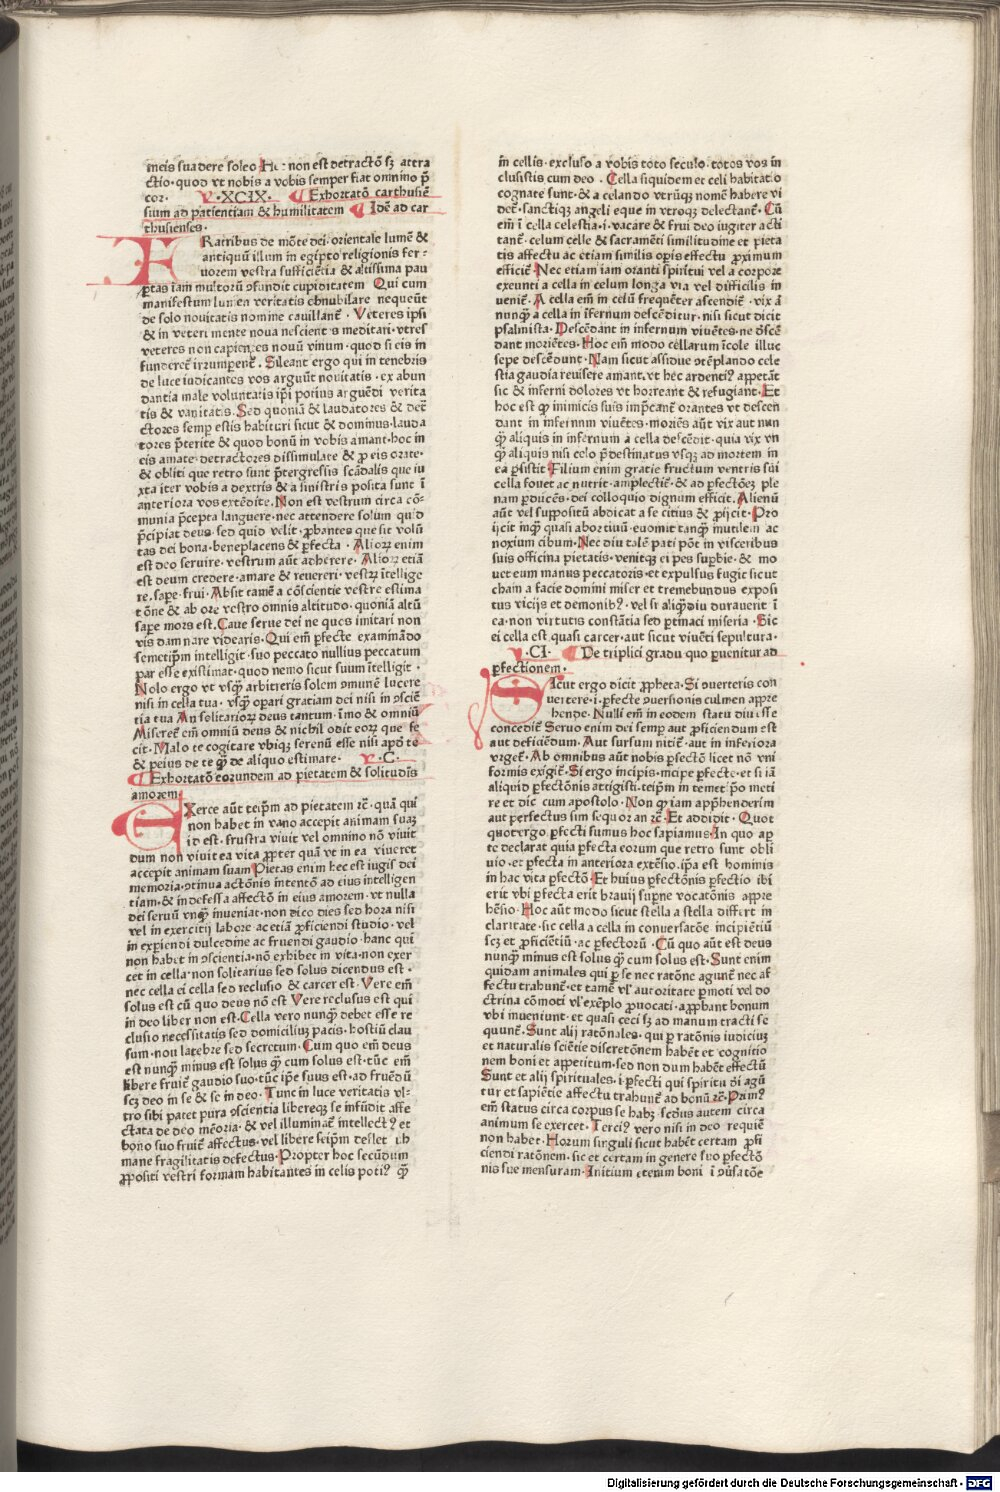 meis suadere soleo Hec non est detractō sꝫ attra
ctio·quod vt nobis a vobis semper fiat omnino p̄
cor· ·XCIX· Exhortatō carthusiē
sium ad patientiam & humilitatem Idē ad car
thusienses·
FRatribus de mōte dei·orientale lumē &
antiquū illum in egipto religionis fer⸗
uorem vestra sufficiētia & altissima pau
ꝑtas iam multorū ꝯfundit cupiditatem Qui cum
manifestum lumen veritatis obnubilare nequeūt
de solo nouitatis nomine cauillant᷑· Veteres ipsi
& in veteri mente noua nescientes meditari·vtres
veteres non capientes nouū vinum·quod si eis in
funderet᷑ irrumperent᷑. Sileant ergo qui in tenebris
de luce iudicantes vos arguūt nouitatis·ex abun
dantia male voluntatis ip̄i potius arguēdi verita
tis & vanitatis. Sed quoniā & laudatores & det᷑
ctores semp estis habituri sicut & dominus·lauda
tores p̄terite & quod bonū in vobis amant·hoc in
eis amate·detractores dissimulate & ꝓ eis orate·
& obliti que retro sunt p̄tergressis scādalis que iu
xta iter vobis a dextris & a sinistris posita sunt ī
anteriora vos extēdite. Non est vestrum circa cō⸗
munia p̄cepta languere·nec attendere solum quid
p̄cipiat deus·sed quid velit·ꝓbantes que sit volū
tas dei bona·beneplacens & ꝑfecta· Alioꝝ enim
est deo seruire·vestrum aūt adherere· Alioꝝ etiā
est deum credere·amare & reuereri·vestrꝝ ītellige
re·sapere·frui·Absit tamē a cōscientie vestre estima
tōne & ab ore vestro omnis altitudo·quoniā altū
saꝑe mors est·Caue serue dei ne ques imitari non
vis damnare videaris·Qui em̄ ꝑfecte examinādo
semetip̄m intelligit·suo peccato nullius peccatum
par esse existimat·quod nemo sicut suum ītelligit·
Nolo ergo vt vsq̄ arbitreris solem ꝯmunē lucere
nisi in cella tua·vsq̄ oꝑari gratiam dei nisi in ꝯsciē
tia tua An solitarioꝝ deus tantum·īmo & omniū
Miseret᷑ em̄ omniū deus & nichil odit eoꝝ que fe
cit·Malo te cogitare vbique serenū esse nisi apd̄ te
& peius de te q̄ de aliquo estimare· ·C·
Exhortatō eorundem ad pietatem & solitudīs
amorem·
EXerce aūt teip̄m ad pietatem rē·quā qui
non habet in vano accepit animam suaꝫ
id est·frustra viuit vel omnino nō viuit
dum non viuit ea vita ꝓpter quā vt in ea viueret
accepit animam suam Pietas enim hec est iugis dei
memoria·ꝯtinua actōnis intentō ad eius intelligen
tiam·& indefessa affectō in eius amorem·vt nulla
dei seruū vnq̄ inueniat·non dico dies sed hora nisi
vel in exercitij labore ac etiā ꝓficiendi studio·vel
in experiendi dulcedine ac fruendi gaudio·hanc qui
non habet in ꝯscientia·nō exhibet in vita·non exer
cet in cella·non solitarius sed solus dicendus est·
nec cella ei cella sed reclusio & carcer est·Vere em̄
solus est cū quo deus nō est Vere reclusus est qui
in deo liber non est·Cella vero nunq̄ debet esse re
clusio necessitatis sed domiciliuꝫ pacis·hostiū clau
sum·non latebre sed secretum·Cum quo em̄ deus
est nunq̄ minus est solus q̄ cum solus est·tūc em̄
libere fruit᷑ gaudio suo·tūc ip̄e suus est·ad fruēdū
scꝫ deo in se & se in deo·Tunc in luce veritatis vl⸗
tro sibi patet pura ꝯscientia libereqꝫ se infūdit affe
ctata de deo mēoria·& vel illuminat᷑ intellectꝰ et
bono suo fruit᷑ affectus·vel libere seip̄m deflet ih
mane fragilitatis defectus·Propter hoc secūdum
ꝓpositi vestri formam habitantes in celis potiꝰ q̄
in cellis·excluso a vobis toto seculo·totos vos in
clusistis cum deo·Cella siquidem et celi habitatio
cognate sunt·& a celando vtrūqꝫ nomē habere vi
det᷑·sanctiqꝫ angeli eque in vtroqꝫ delectant᷑·Cū
em̄ ī cella celestia·i·vacare & frui deo iugiter acti
tant᷑·celum celle & sacramēti similitudine et pieta
tis affectu ac etiam similis oꝑis effectu ꝓximum
efficit᷑·Nec etiam iam oranti spiritui vel a corpore
exeunti a cella in celum longa via vel difficilis in
uenit᷑·A cella em̄ in celū frequēter ascendit᷑·vix āt
nunq̄ a cella in īfernum descēditur·nisi sicut dicit
psalmista·Descēdant in infernum viuētes·ne d̄scē
dant moriētes·Hoc em̄ modo cellarum īcole illuc
sepe descēdunt·Nam sicut assidue ꝯtēplando cele
stia gaudia reuisere amant·vt hec ardentiꝰ appetāt
sic & inferni dolores vt horreant & refugiant·Et
hoc est qd̄ inimicis suis imp̄cant᷑ orantes vt descen
dant in infernum viuētes·moriēs aūt vix aut nun
q̄ aliquis in infernum a cella descēdit·quia vix vn
q̄ aliquis nisi celo p̄destinatus vsqꝫ ad mortem in
ea ꝑsistit·Filium enim gratie fructum ventris sui
cella fouet ac nutrit·amplectit᷑·& ad ꝑfectōeꝫ ple
nam ꝑducēs·dei colloquio dignum efficit·Alienū
aūt vel suppositū abdicat a se citius & ꝓijcit·Pro
ijcit inq̄ quasi abortiuū·euomit tanq̄ inutilem ac
noxium cibum·Nec diu talē pati pōt in visceribus
suis officina pietatis·venitqꝫ ei pes suꝑbie·& mo
uet eum manus peccatoris·et expulsus fugit sicut
cham a facie domini miser et tremebundus exposi
tus vicijs et demonibꝰ·vel si aliq̄diu durauerit ī
ea·non virtutis constātia sed ꝑtinaci miseria·Sic
ei cella est·quasi carcer·aut sicut viuēti sepultura·
·CI· De triplici gradu quo ꝑuenitur ad
ꝑfectionem·
SIcut ergo dicit ꝓpheta·Si ꝯuerteris con
uertere·i·ꝑfecte ꝯuersionis culmen appre
hende·Nulli em̄ in eodem statu diu esse
concedit᷑ Seruo enim dei semꝑ aut ꝓficiendum est
aut deficiēdum·Aut sursum nitit᷑·aut in inferiora
vrget᷑·Ab omnibus aūt nobis ꝑfectō licet nō vni
formis exigit᷑·Si ergo incipis·īncipe ꝑfecte·et si iā
aliquid ꝑfectōnis attigisti·teip̄m in temet ip̄o meti
re et dic cum apostolo·Non q̄ iam app̄henderim
aut ꝑfectus sim sequor an rē·Et addidit·Quot
quot ergo ꝑfecti sumus hoc sapiamus·In quo aꝑ
te declarat quia ꝑfecta eorum que retro sunt obli
uio·et ꝑfecta in anteriora extēsio·ip̄a est hominis
in hac vita ꝑfectō·Et huius ꝑfectōnis ꝑfectio ibi
erit vbi ꝑfecta erit brauij suꝑne vocatōnis appre
hēsio·Hoc aūt modo sicut stella a stella differt in
claritate·sic cella a cella in conuersatōe incipiētiū
scꝫ et ꝓficiētiū·ac ꝑfectorū·Cū quo aūt est deus
nunq̄ minus est solus q̄ cum solus est·Sunt enim
quidam animales qui ꝑ se nec ratōne agunt᷑ nec af
fectu trahunt᷑·et tamē vl̓ autoritate ꝑmoti vel do
ctrina cōmoti vl̓ exēplo ꝓuocati·aꝓbant bonum
vbi inueniunt·et quasi ceci sꝫ ad manum tracti se
quunt᷑·Sunt alij ratōnales·qui ꝑ ratōnis iudiciuꝫ
et naturalis sciētie discretōnem habēt et cognitio
nem boni et appetitum·sed non dum habēt effectū
Sunt et alij spirituales·i·ꝑfecti qui spiritu dī agū
tur et sapiētie affectu trahunt᷑ ad bonū rē·Primꝰ
em̄ status circa corpus se habꝫ·secūdus autem circa
animum se exercet·Terciꝰ vero nisi in deo requiē
non habet·Horum singuli sicut habēt certam ꝓfi
ciendi ratōnem·sic et certam in genere suo ꝑfectō
nis sue mensuram·Initium eterum boni ī ꝯuersatōe
Digitalisierung gefördert durch die Deutsche Forschungsgemeinschaft · DFG